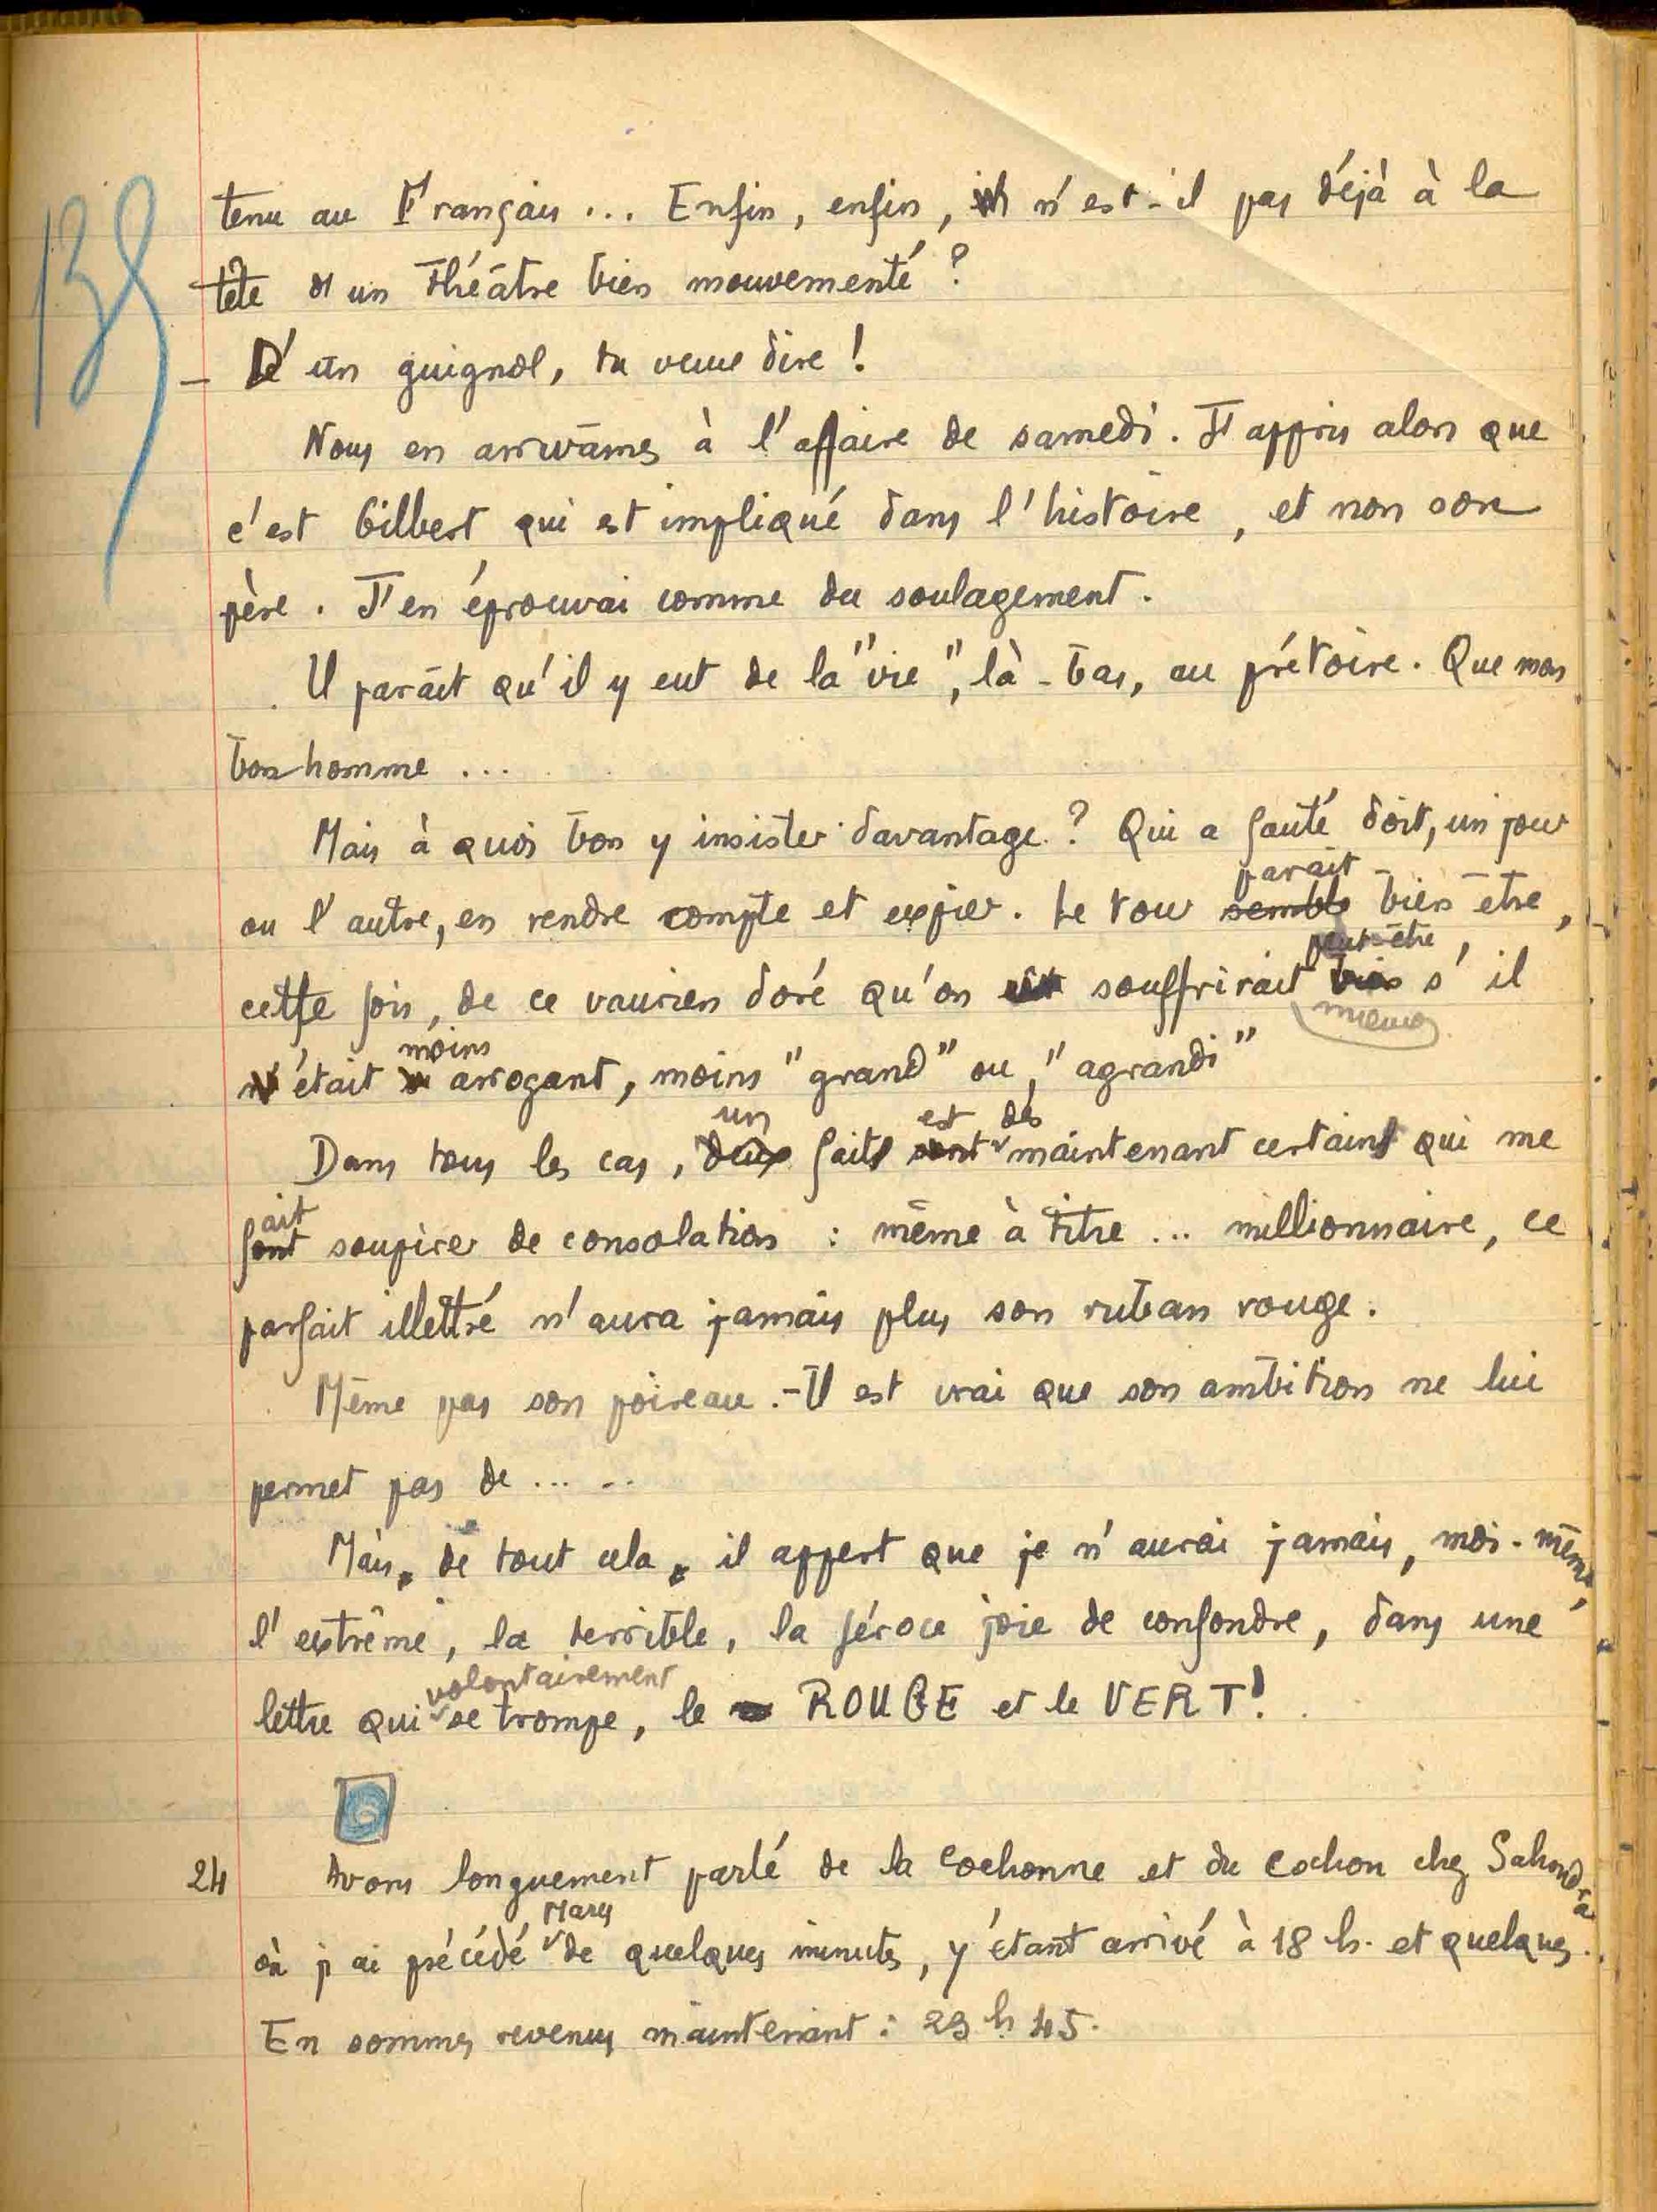 138
tenu au Français ... Enfin, enfin, n'est-il pas déjà à la
tête d'un théâtre bien mouvementé ?
- D'un guignol, tu veux dire !
Nous en arrivâmes à l'affaire de samedi. J'appris alors que
c'est Gilbert qui est impliqué dans l'histoire, et non son
père. J'en éprouvai comme du soulagement.
Il paraît qu'il y eut de la "vie", là-bas, au prétoire. Que mon
bonhomme ...
Mais à quoi bon y insister davantage ? Qui a fauté doit, un jour
paraît
ou l'autre, en rendre compte et expier. Le tour semble bien être,
peut-être,
cette fois, de ce vaurien doré qu'on souffrirait bien s'il
mieux
moins
n'était arrogant, moins "grand" ou, "agrandi"
un est dès
Dans tous les cas, deux faits sont maintenant certains qui me
ait
font soupirer de consolation : même à titre ... millionnaire, ce
parfait illettré n'aura jamais plus son ruban rouge.
Même pas son poireau. - Il est vrai que son ambition ne lui
permet pas de ... ..
Mais, de tout cela, il appert que je n'aurai jamais, moi-même,
l'extrême, la terrible, la féroce joie de confondre, dans une
volontairement
lettre qui se trompe, le ROUGE et le VERT !
6
24 Avons longuement parlé de la Cochonne et du Cochon chez Sahondra
Mary
où j'ai précédé de quelques minutes, y étant arrivé à 18 h. et quelques.
En sommes revenus maintenant : 23 h 45.